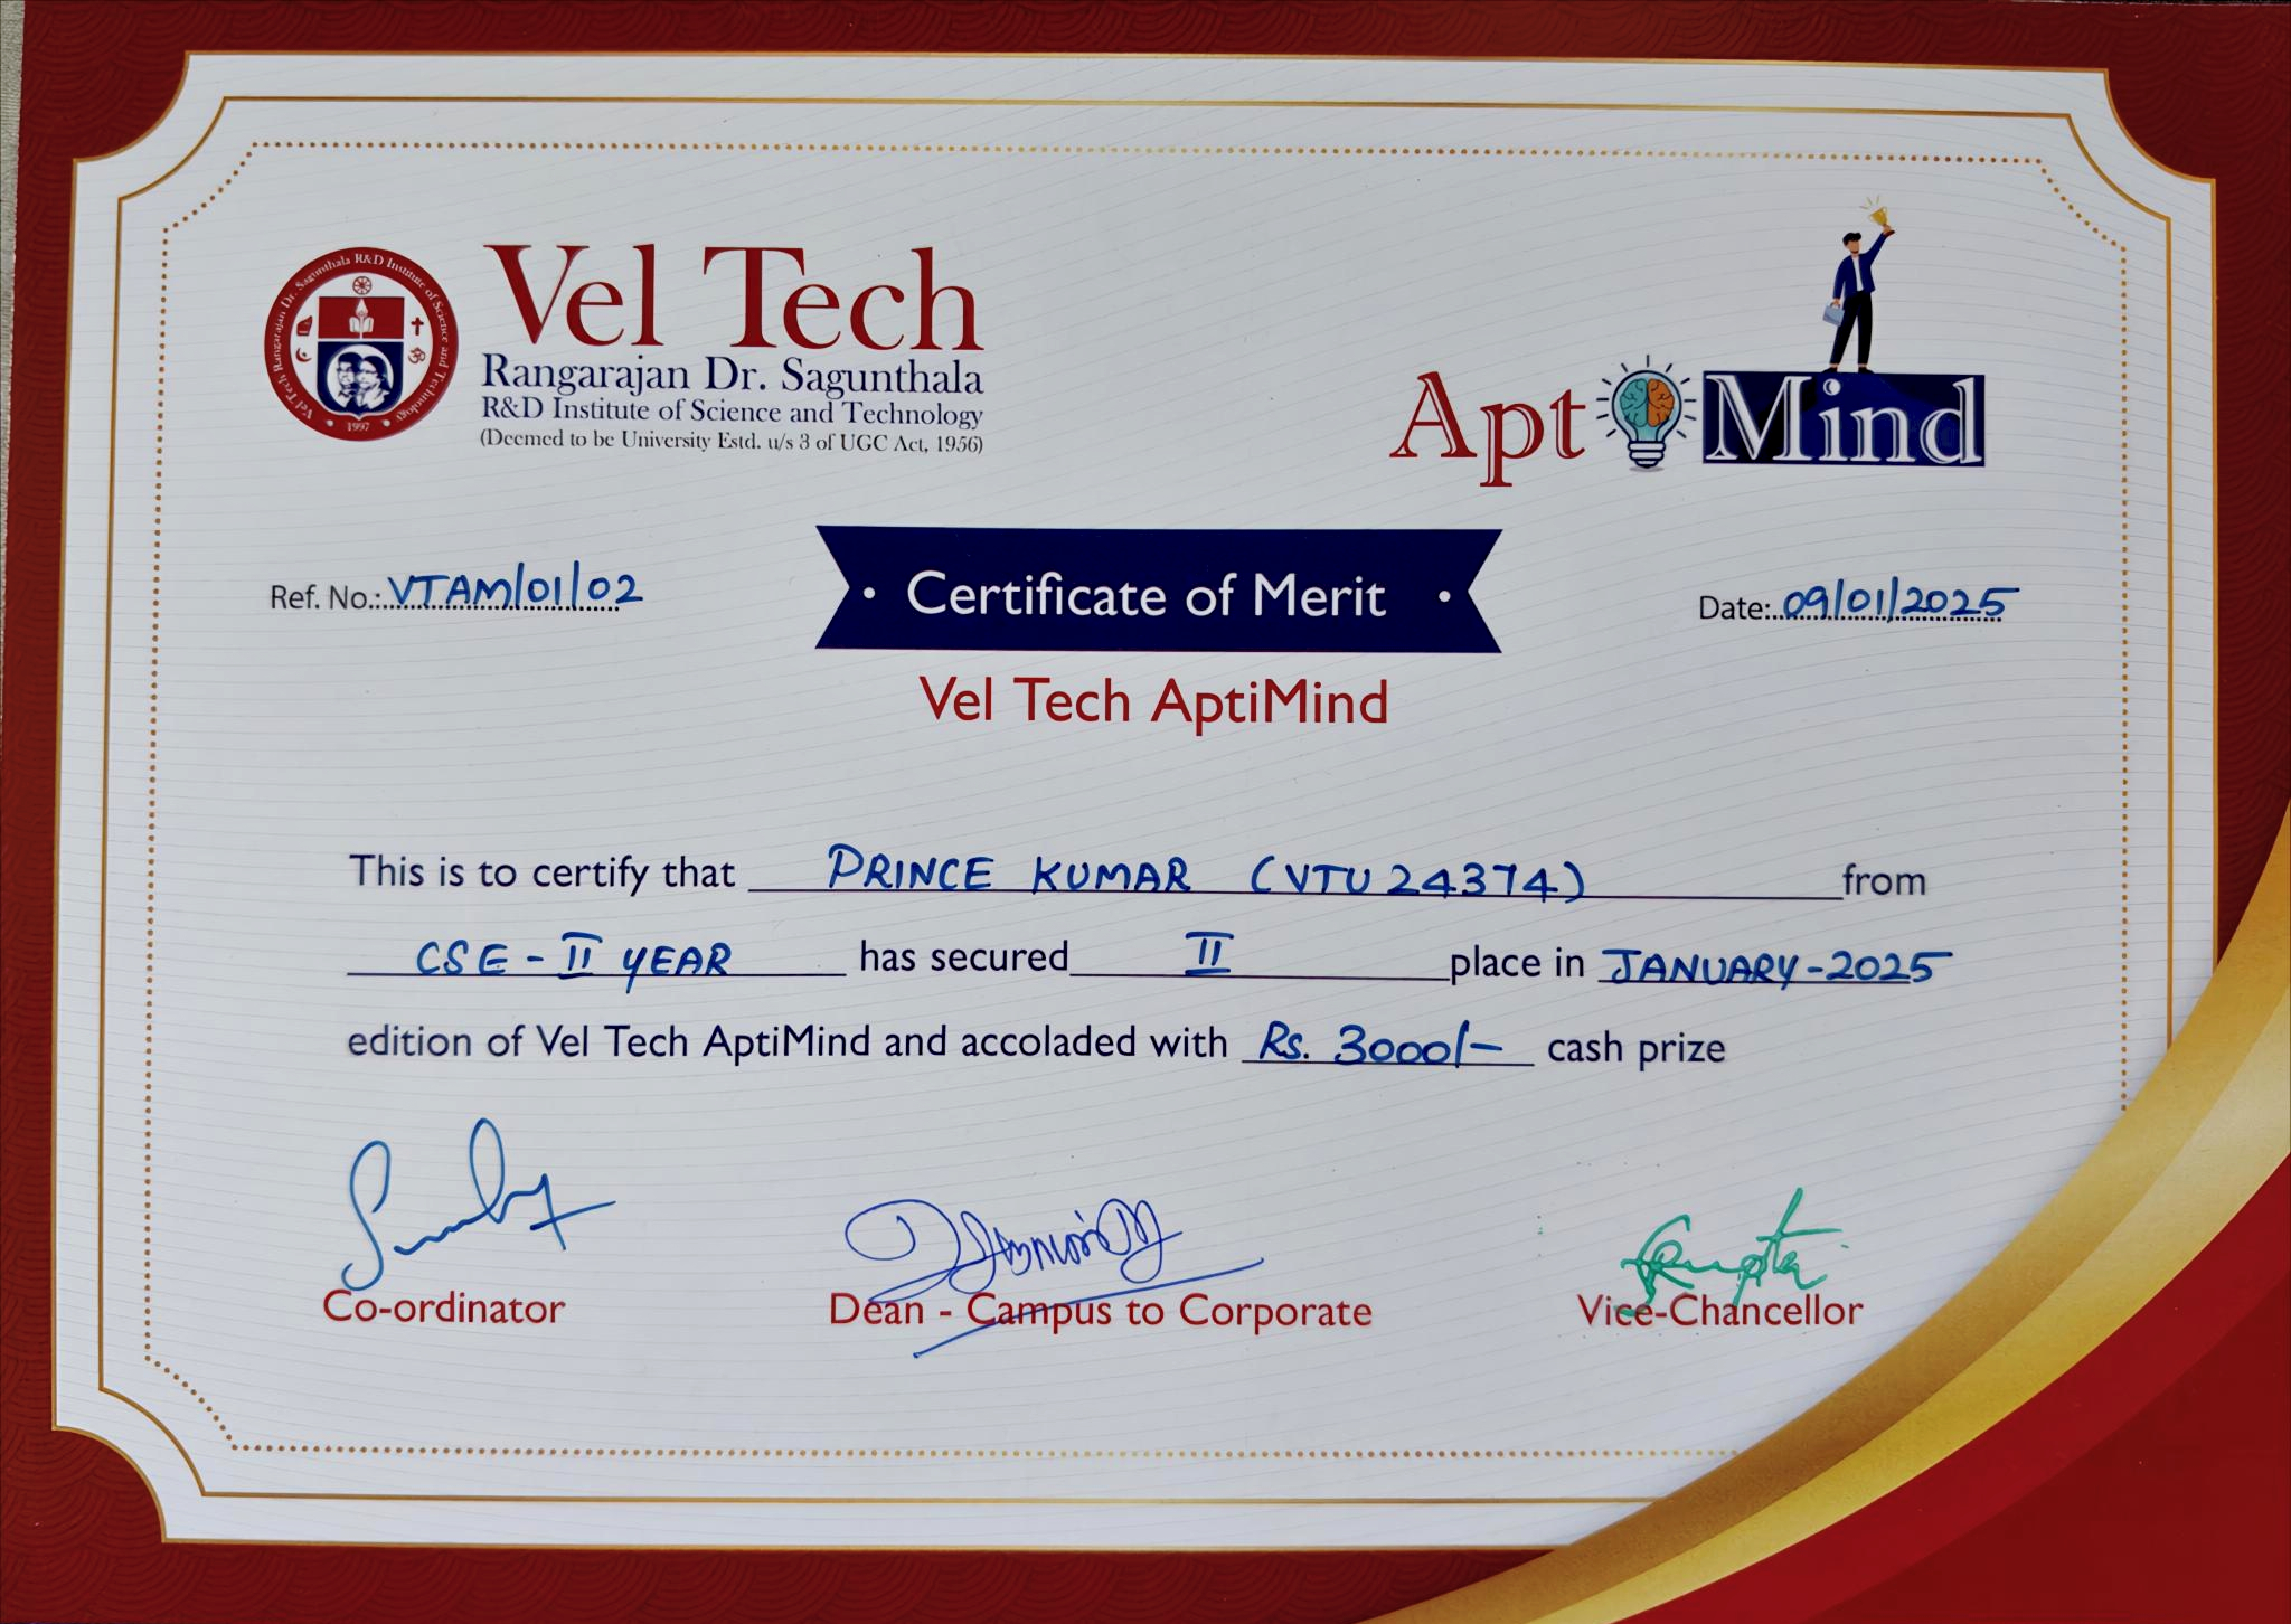 Vel Tech Rangarajan Dr. Sagunthala R&D Institute of Science and Technology
1997
Vel Tech
Rangarajan Dr. Sagunthala
R&D Institute of Science and Technology
(Deemed to be University Estd. u/s 3 of UGC Act, 1956)
Apt Mind
Ref. No.: VTAM/01/02
Certificate of Merit
Date: 09/01/2025
Vel Tech AptiMind
This is to certify that PRINCE KUMAR (VTU 24374) from
CSE - II YEAR has secured II place in JANUARY-2025
edition of Vel Tech AptiMind and accoladed with Rs. 3000/- cash prize
Co-ordinator
Dean - Campus to Corporate
Vice-Chancellor